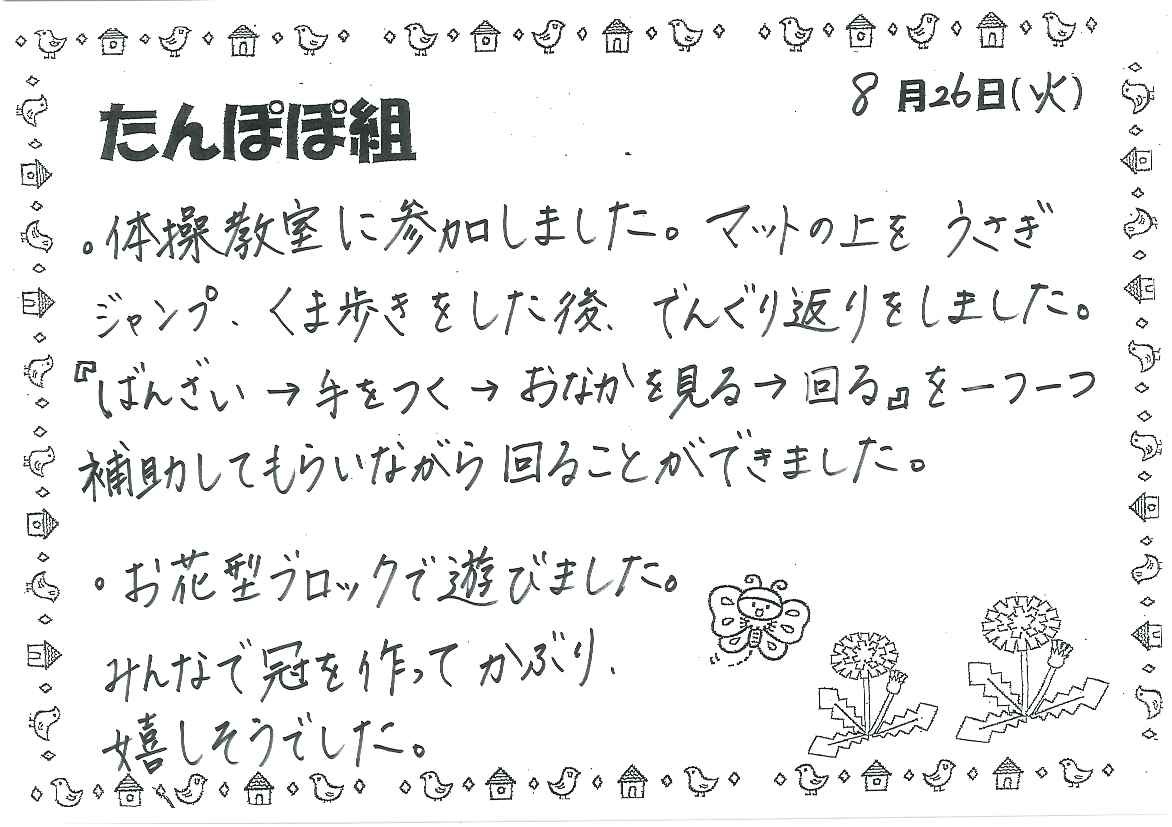 8月26日(火)
たんぽぽ組
。体操教室に参加しました。マットの上を うさぎ
ジャンプ、くま歩きをした後、でんぐり返りをしました。
『ばんざい→手をつく→おなかを見る→回る』を一つ一つ
補助してもらいながら回ることができました。
。お花型ブロックで遊びました。
みんなで冠を作ってかぶり、
嬉しそうでした。